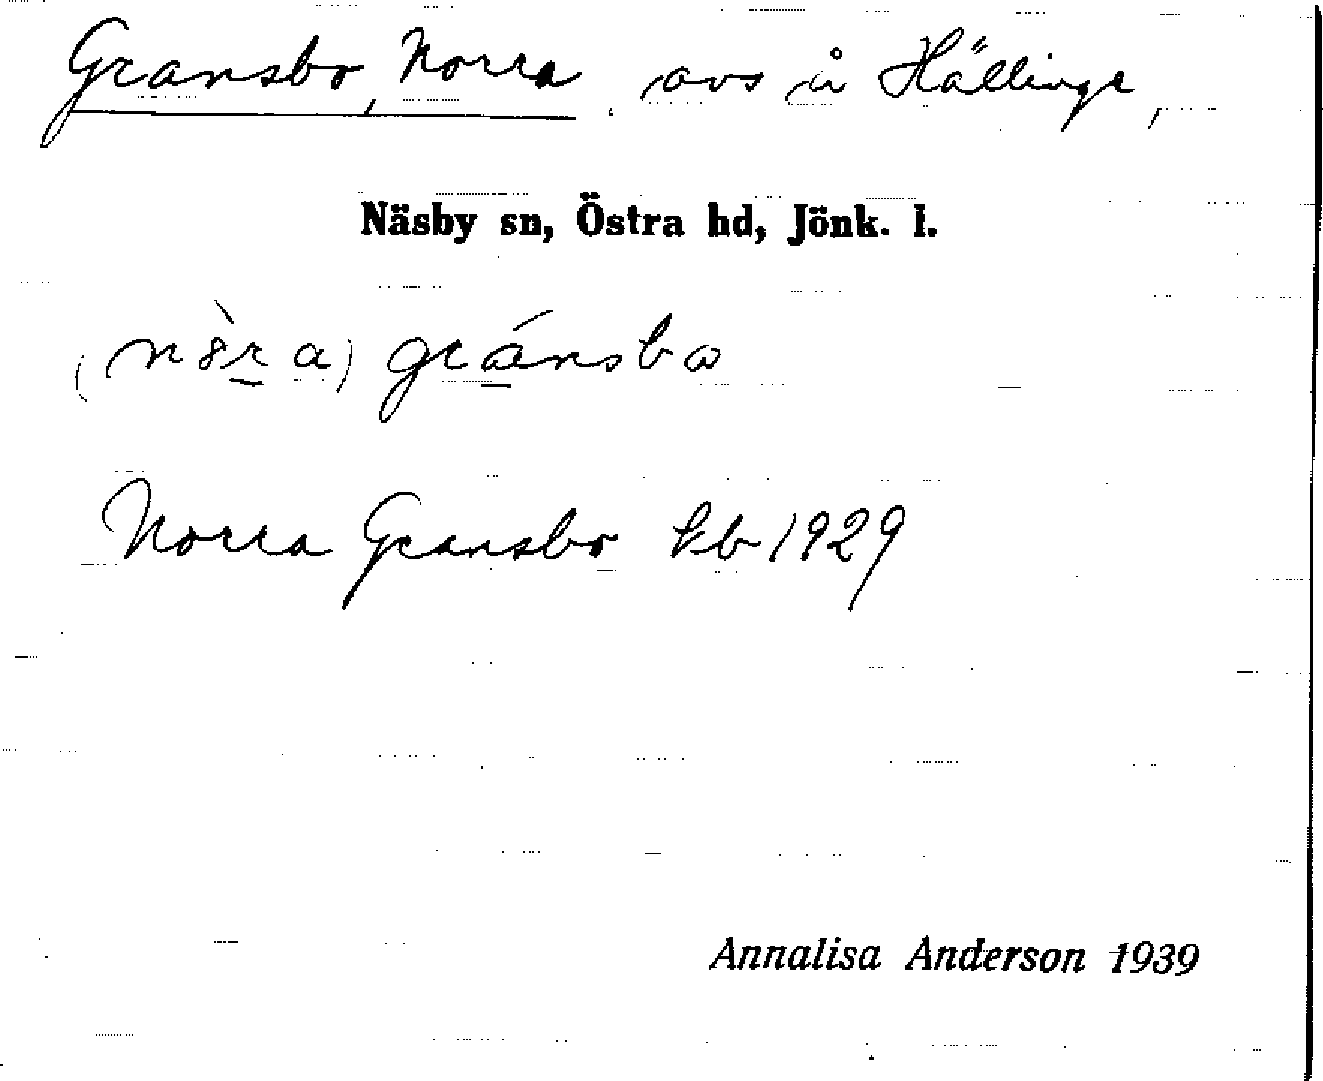 Gransbo, Norra, avs å Hällinge,
Näsby sn, Östra hd, Jönk. l.
(nòra) gránsba
Norra Gransbo kb 1929
Annalisa Anderson 1939